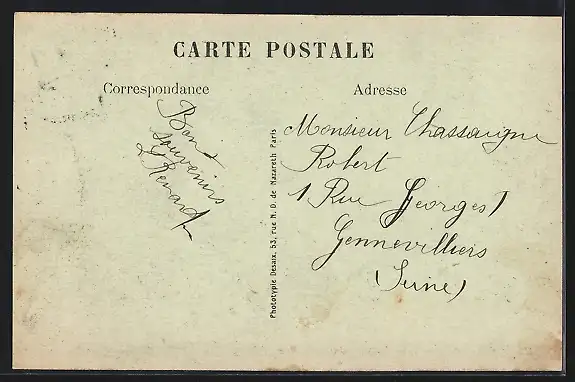 CARTE POSTALE
Correspondance
Adresse
Bons
souvenirs
L Renard
Phototypie Desaix, 53, rue N. D. de Nazareth Paris
Monsieur Chassaigne
Robert
1 Rue Georges 1
Gennevilliers
(Seine)